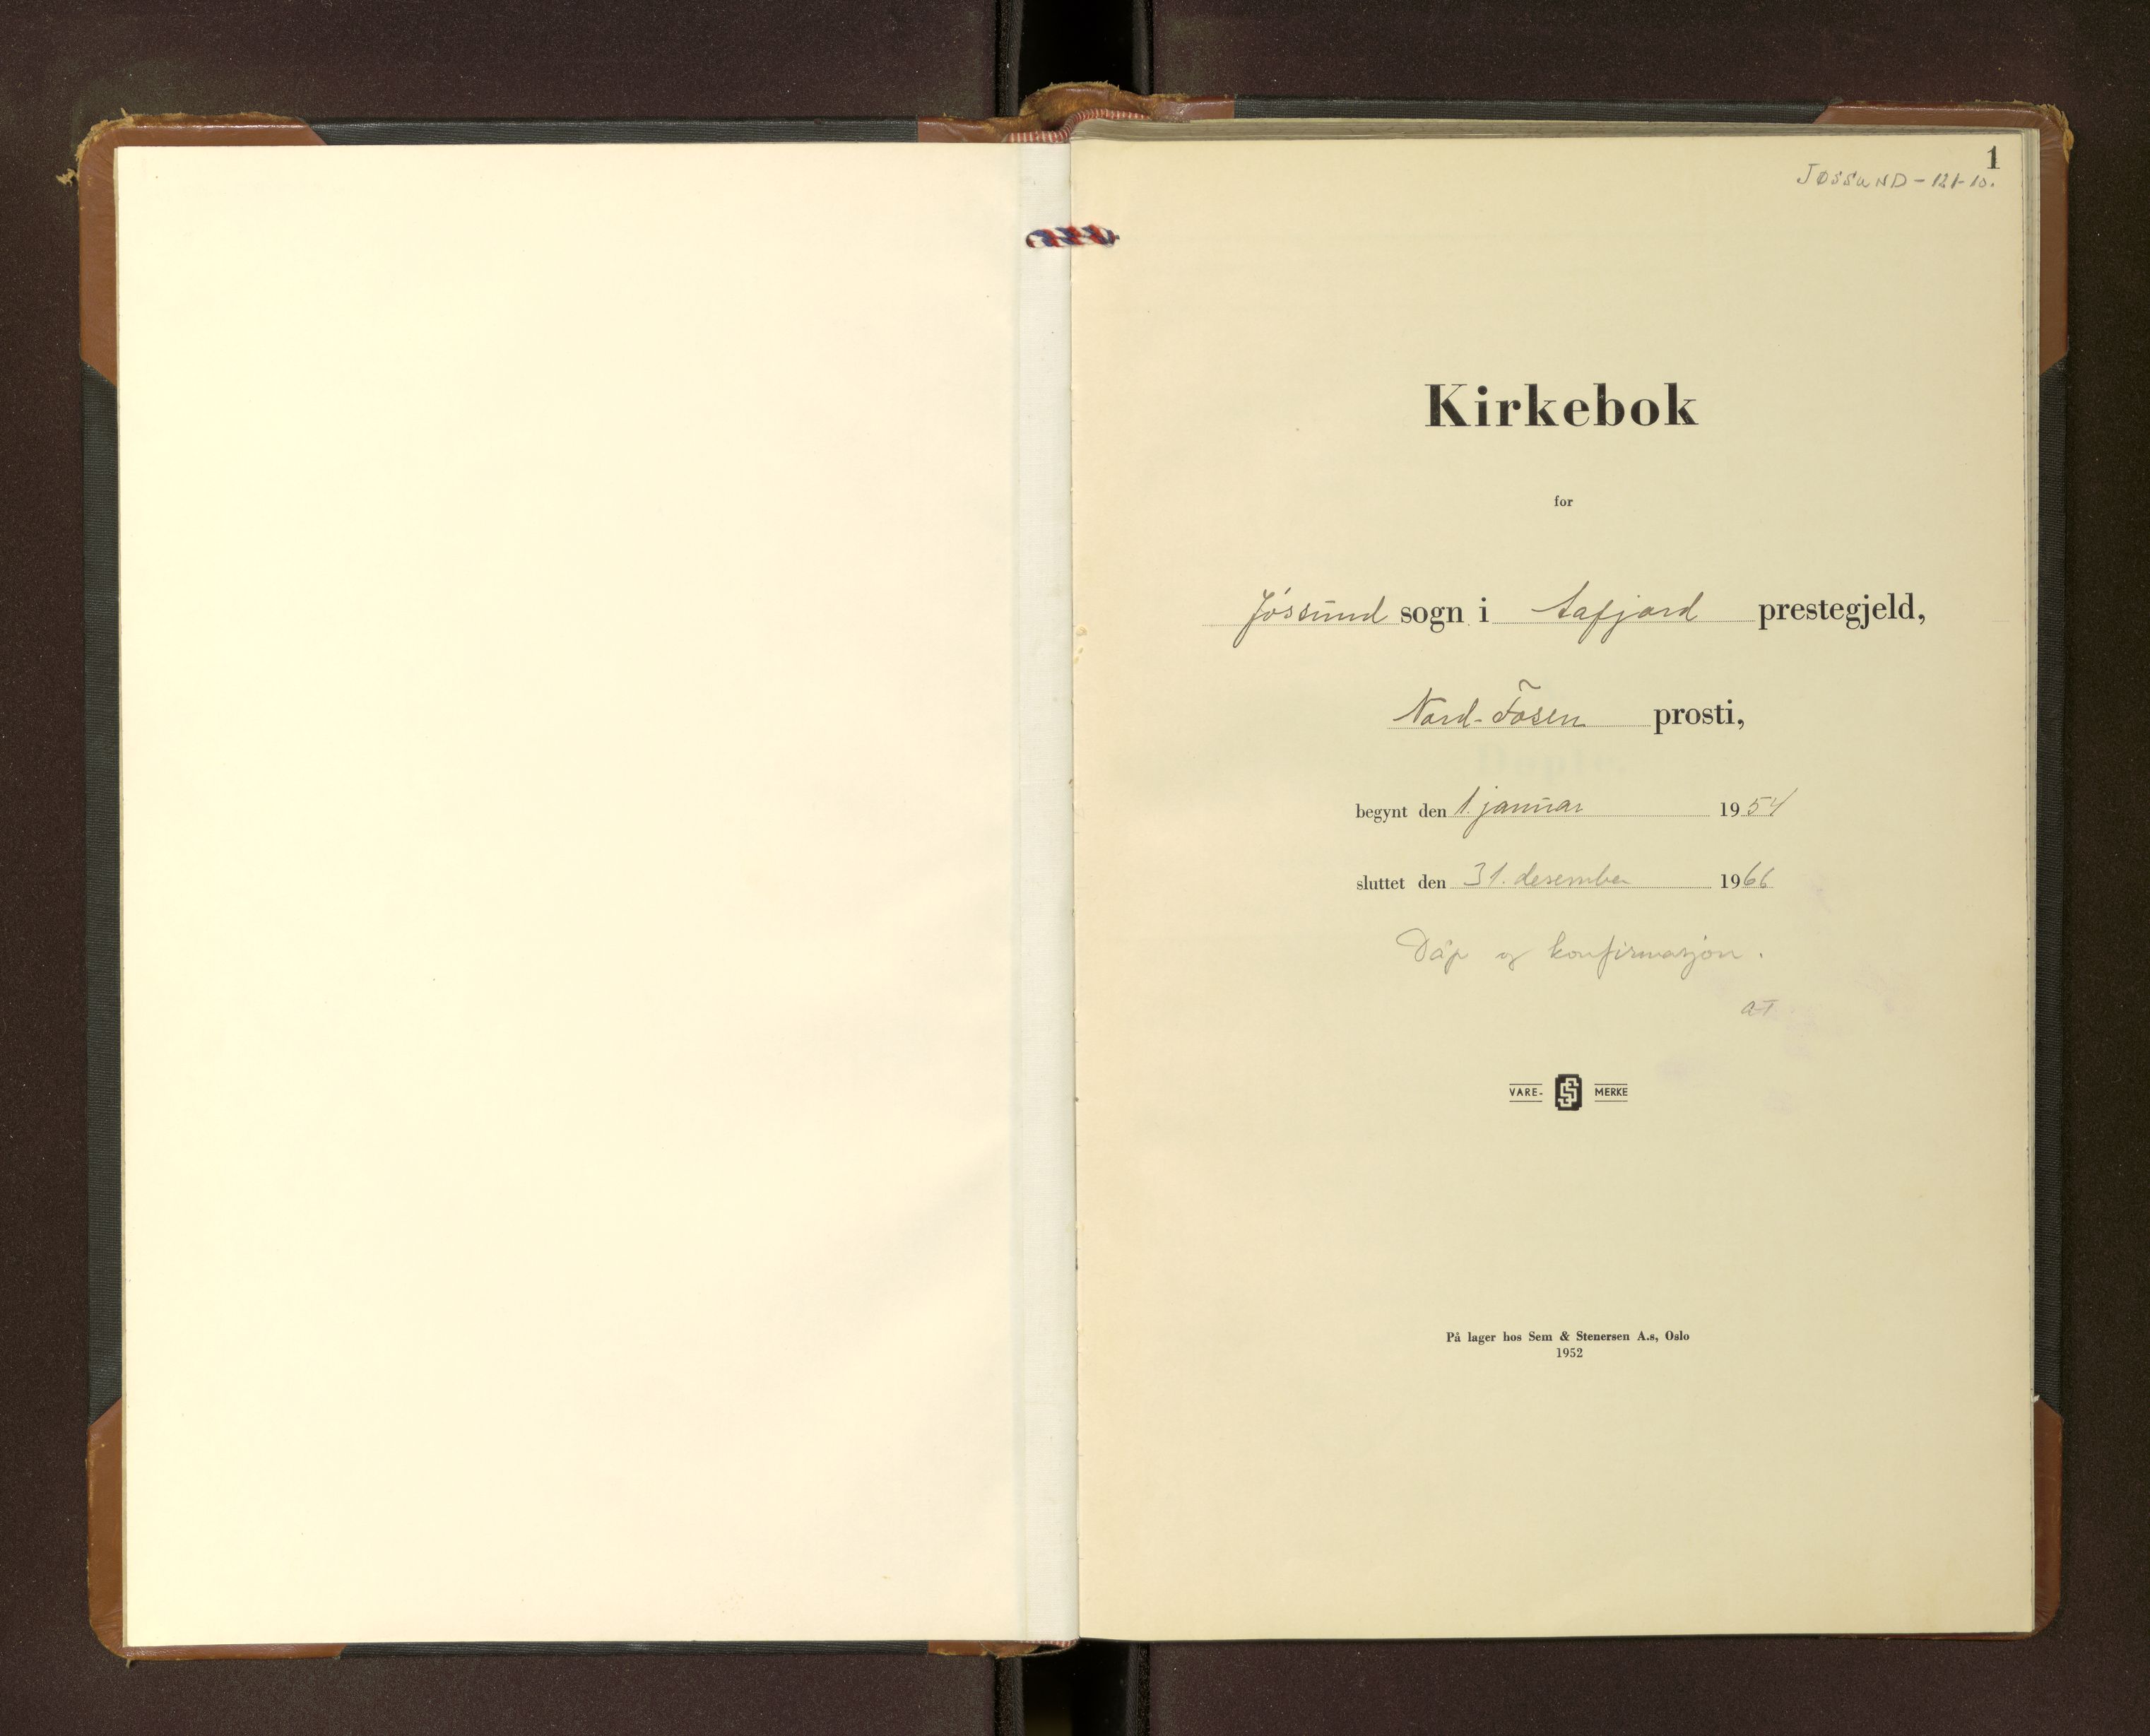 1
JØSSUND - 121-10.
Kirkebok
for
Jössund sogn i Aafjord prestegjeld,
Nord-Fosen prosti,
begynt den 1. januar 1954
sluttet den 31. desember 1966
Dåp og konfirmasjon.
VARE- MERKE
På lager hos Sem & Stenersen A.s, Oslo
1952